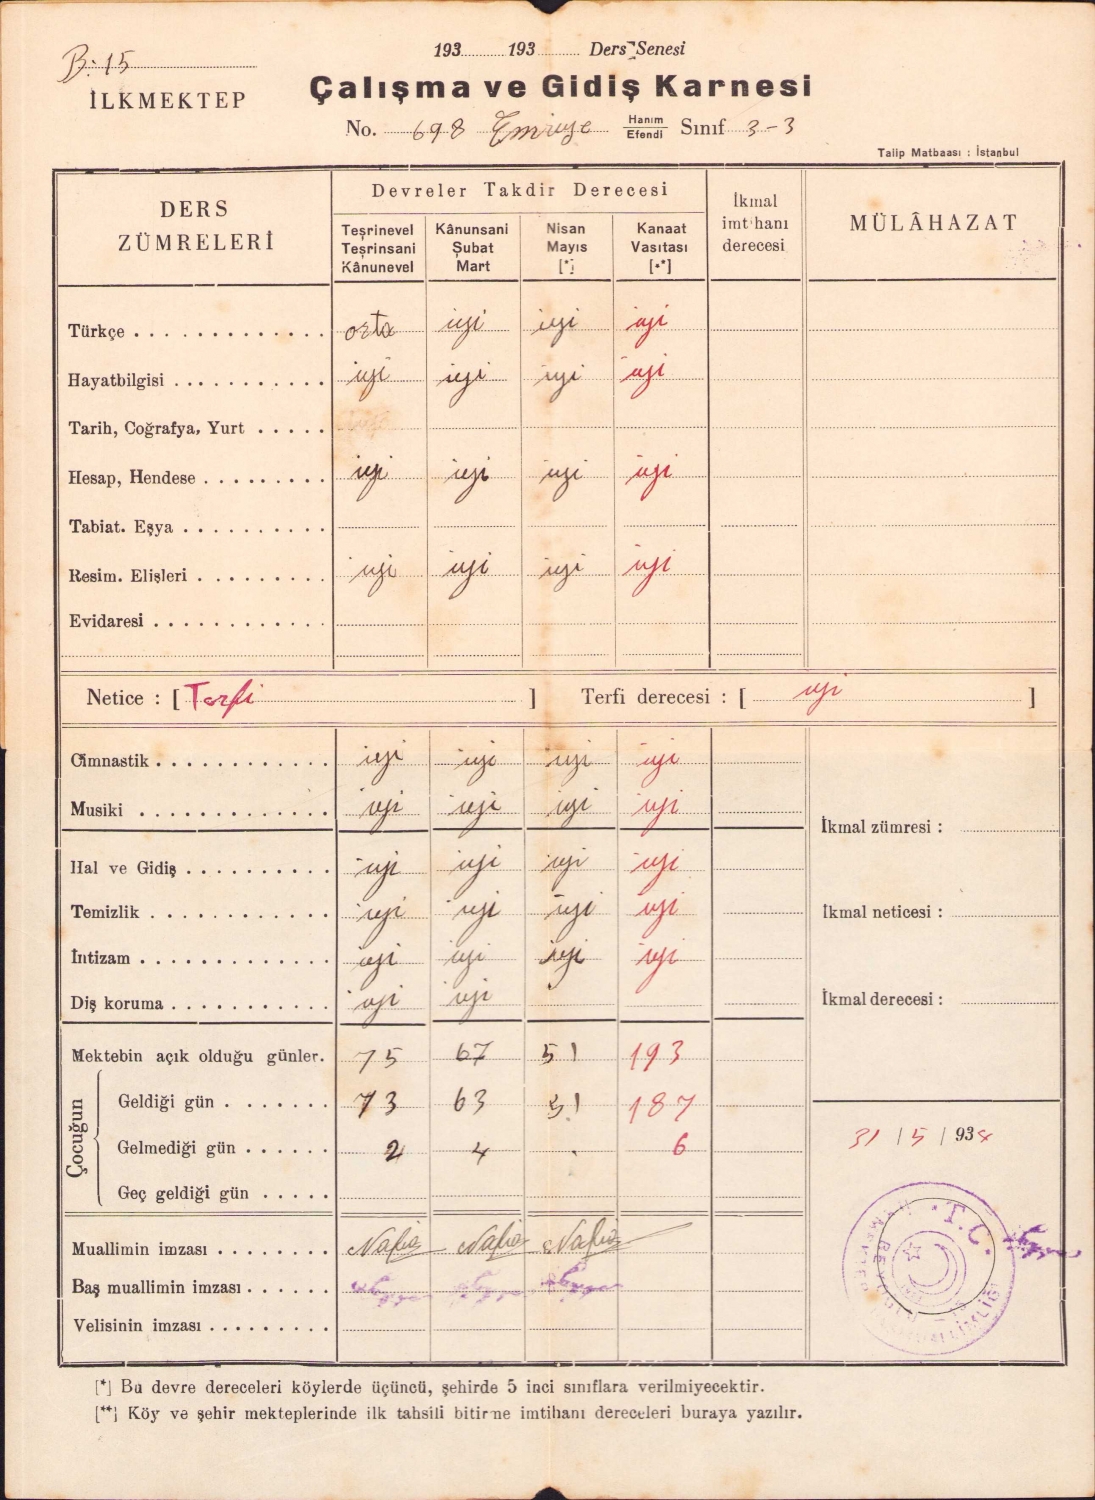 193 193 Ders Senesi
B: 15
İLKMEKTEP
Çalışma ve Gidiş Karnesi
No. 698 Emiriye Hanım Efendi Sınıf 3-3
Talip Matbaası : İstanbul
DERS ZÜMRELERİ
Devreler Takdir Derecesi
İkmal imtihanı derecesi
MÜLÂHAZAT
Teşrinevel Teşrinsani Kânunevel
Kânunsani Şubat Mart
Nisan Mayıs [*]
Kanaat Vasıtası [**]
Türkçe orta iyi iyi iyi
Hayatbilgisi iyi iyi iyi iyi
Tarih, Coğrafya, Yurt
Hesap, Hendese iyi iyi iyi iyi
Tabiat. Eşya
Resim. Elişleri iyi iyi iyi iyi
Evidaresi
Netice : [ Terfi ] Terfi derecesi : [ iyi ]
Cimnastik iyi iyi iyi iyi
Musiki iyi iyi iyi iyi
İkmal zümresi :
Hal ve Gidiş iyi iyi iyi iyi
Temizlik iyi iyi iyi iyi
İkmal neticesi :
İntizam iyi iyi iyi iyi
Diş koruma iyi iyi
İkmal derecesi :
Mektebin açık olduğu günler. 75 67 51 193
Çocuğun
Geldiği gün 73 63 51 187
Gelmediği gün 2 4 . 6
31 / 5 / 934
Geç geldiği gün
T.C.
Muallimin imzası Nafia Nafia Nafia
Baş muallimin imzası
Velisinin imzası
[*] Bu devre dereceleri köylerde üçüncü, şehirde 5 inci sınıflara verilmiyecektir.
[**] Köy ve şehir mekteplerinde ilk tahsili bitirme imtihanı dereceleri buraya yazılır.